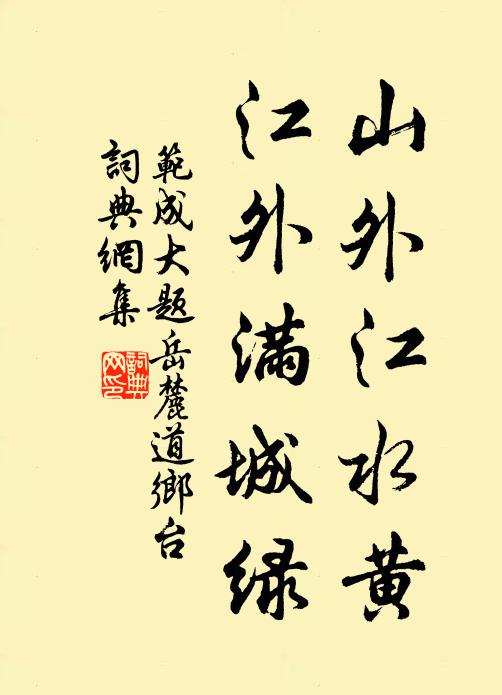 山外江水黄
江外满城绿
範成大题岳麓道鄉台
詞典網集
詞典网印